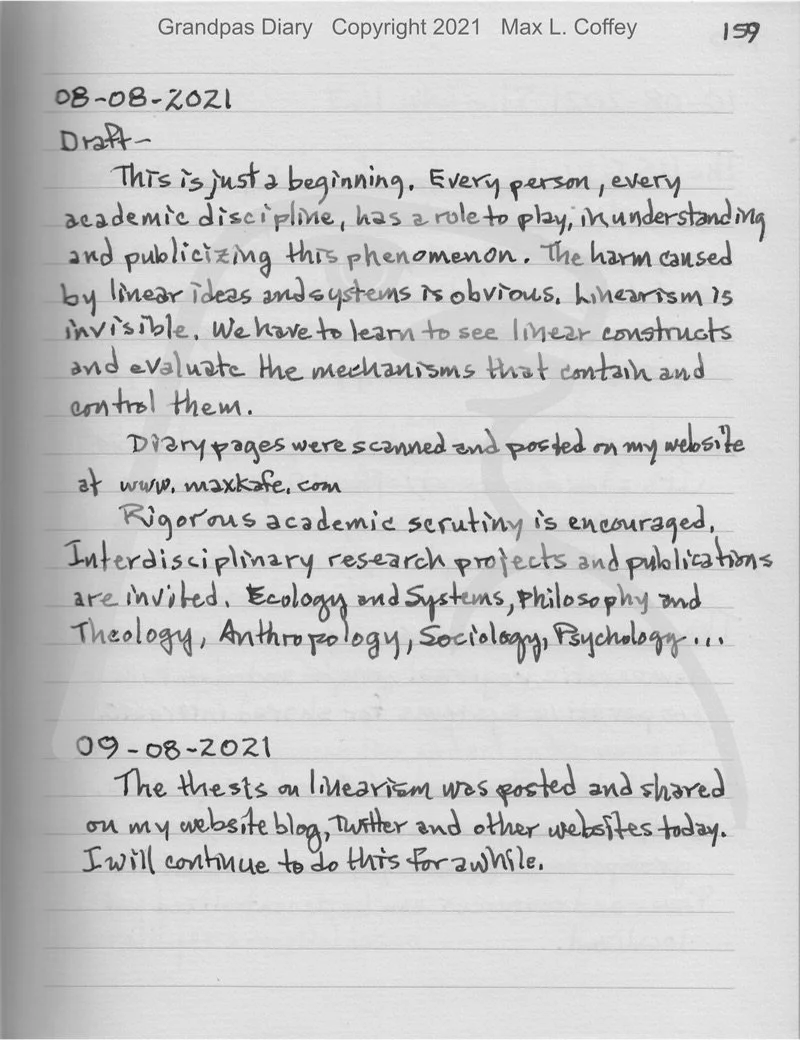 Grandpas Diary Copyright 2021 Max L. Coffey
159
08-08-2021
Draft-
This is just a beginning. Every person, every
academic discipline, has a role to play, in understanding
and publicizing this phenomenon. The harm caused
by linear ideas and systems is obvious. Linearism is
invisible. We have to learn to see linear constructs
and evaluate the mechanisms that contain and
control them.
Diary pages were scanned and posted on my website
at www.maxkafe.com
Rigorous academic scrutiny is encouraged.
Interdisciplinary research projects and publications
are invited. Ecology and Systems, Philosophy and
Theology, Anthropology, Sociology, Psychology...
09-08-2021
The thesis on linearism was posted and shared
on my website blog, Twitter and other websites today.
I will continue to do this for awhile.